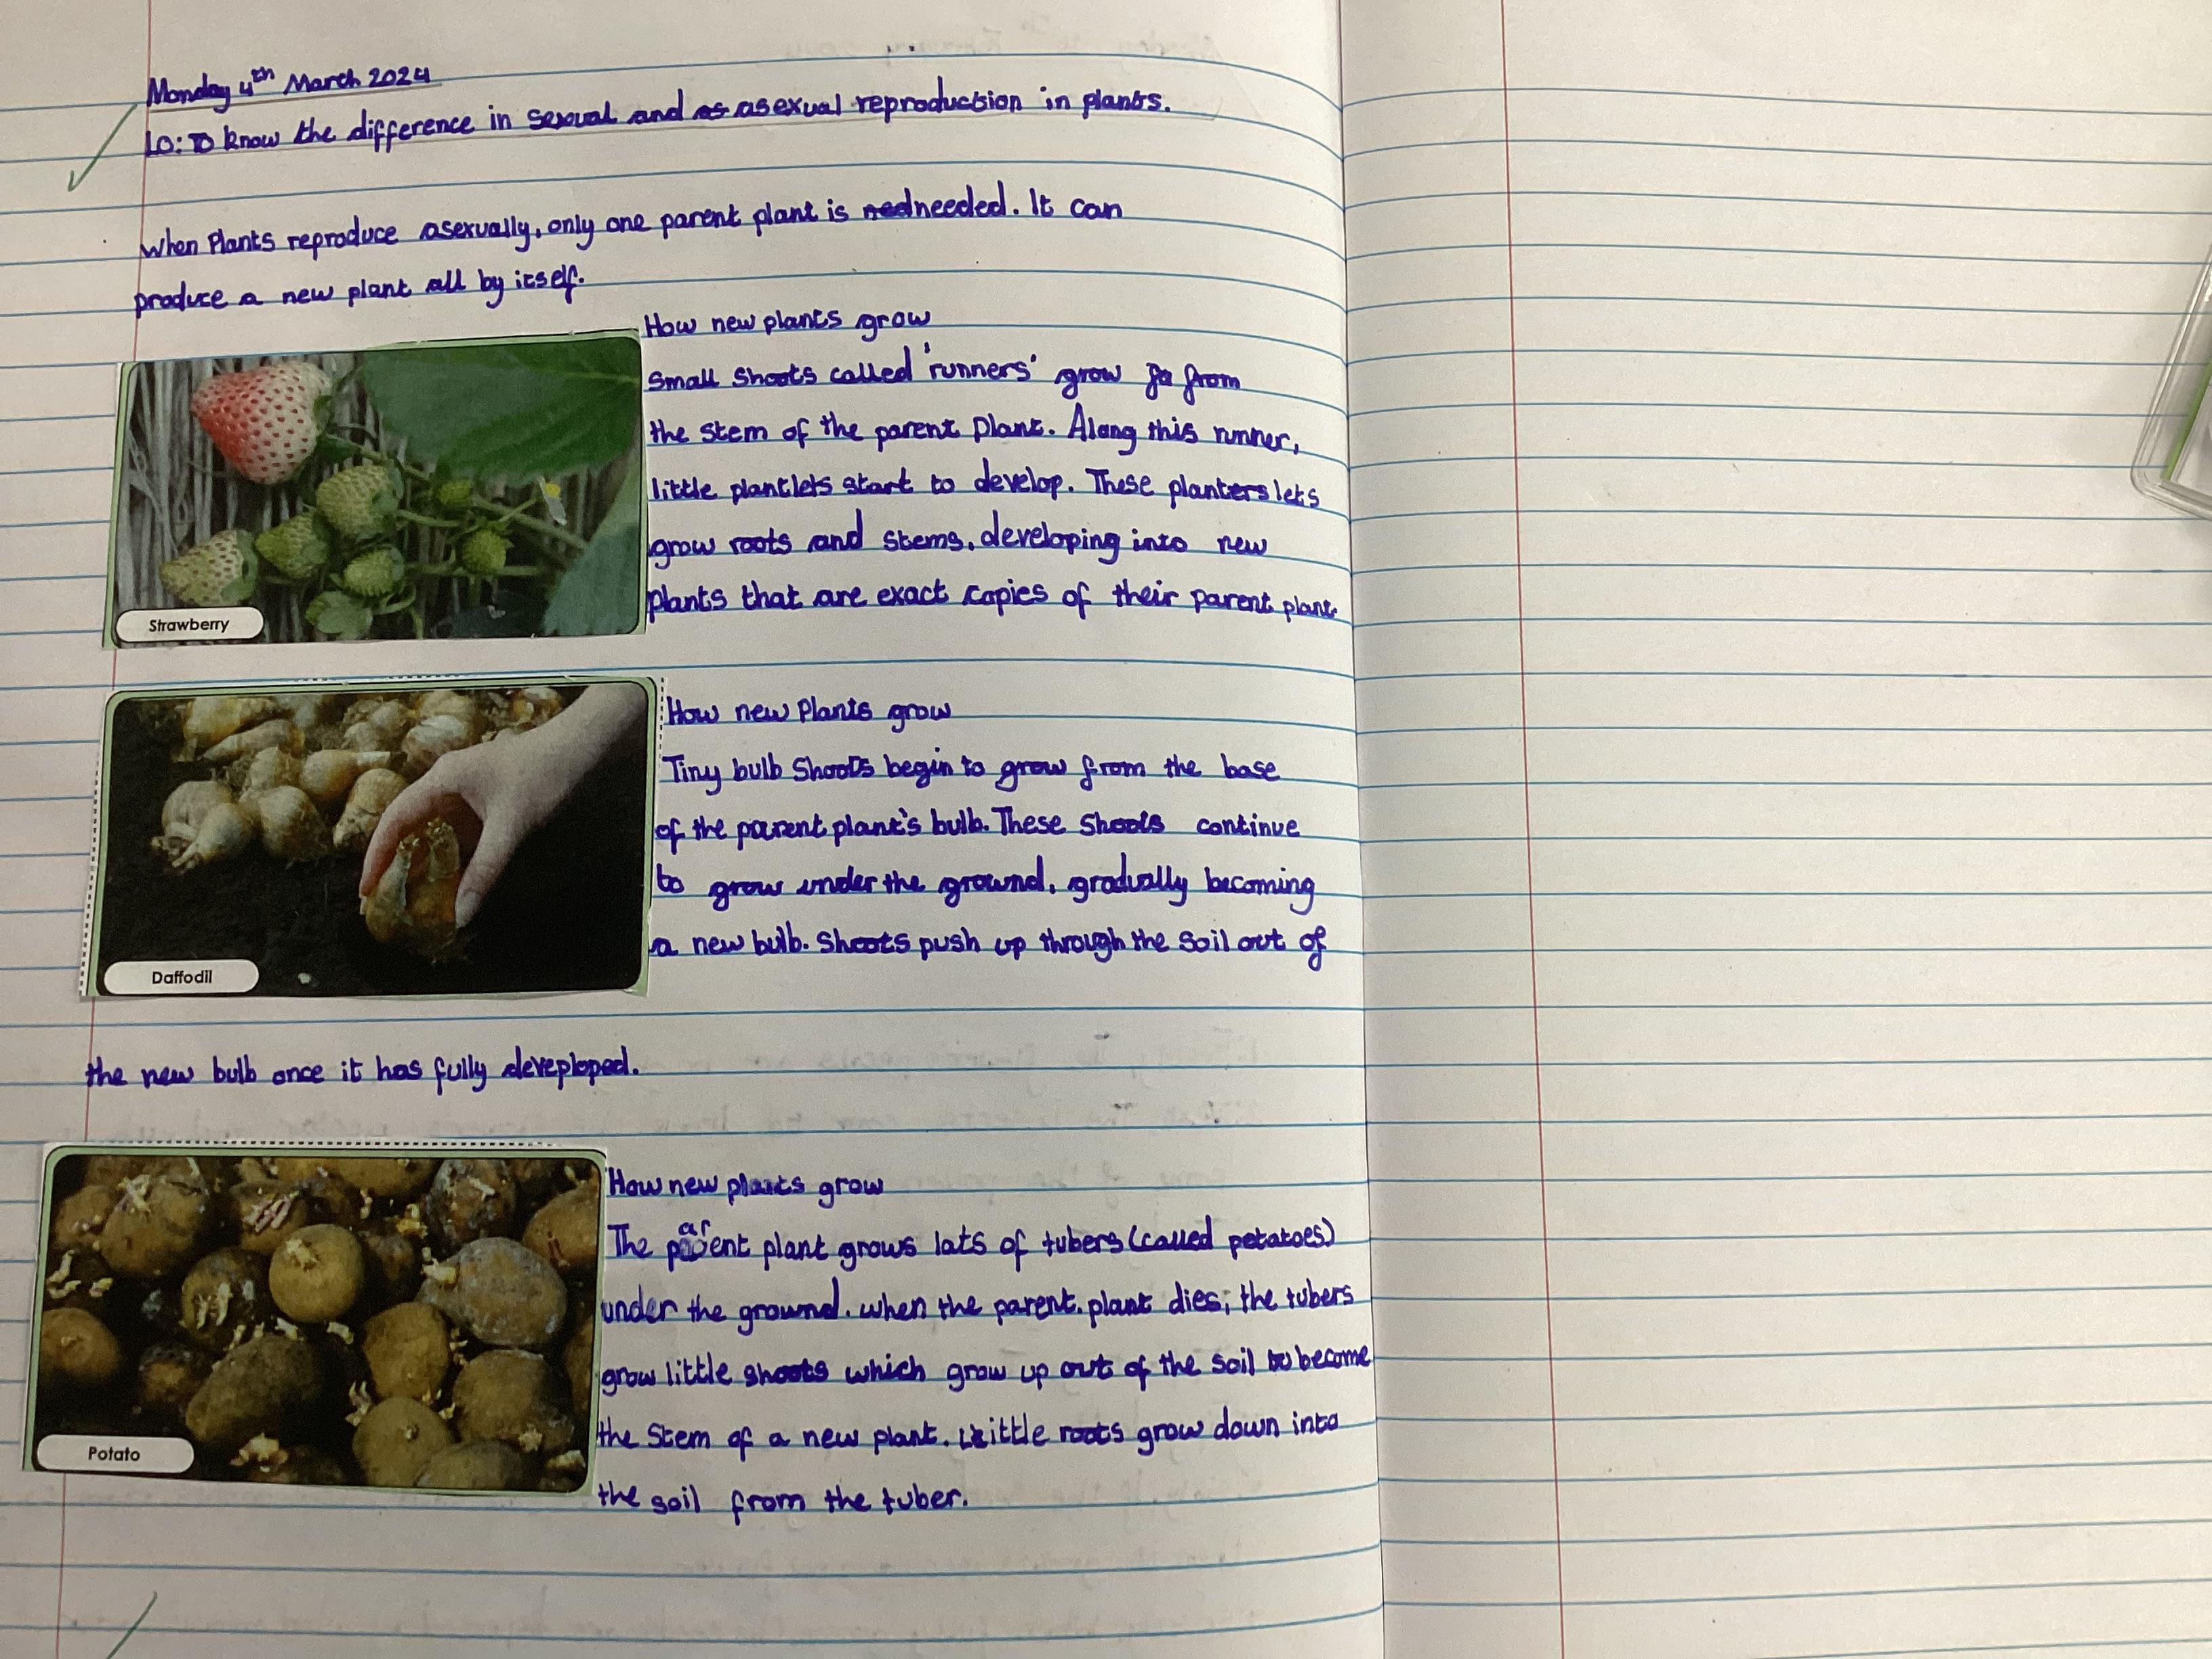 Monday 4th March 2024
LO: To know the difference in sexual and as asexual reproduction in plants.
When Plants reproduce asexually, only one parent plant is ned needed. It can
produce a new plant all by itself.
How new plants grow
Small Shoots called 'runners' grow fo from
the stem of the parent plant. Along this runner,
little plantlets start to develop. These planterslets
grow roots and stems, developing into new
plants that are exact copies of their parent plant.
Strawberry
How new Plants grow
Tiny bulb Shoots begin to grow from the base
of the parent plant's bulb. These Shoots continue
to grow under the ground, gradually becoming
a new bulb. Shoots push up through the soil out of
Daffodil
the new bulb once it has fully deveploped.
How new plants grow
The parent plant grows lats of tubers (called petatoes)
under the ground. when the parent. plant dies; the tubers
grow little shoots which grow up out of the soil to become
the Stem of a new plant. Little roots grow down into
the soil from the tuber.
Potato